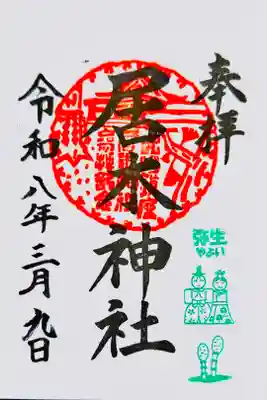 奉拝
居木神社
令和八年三月九日
弥生
やよい